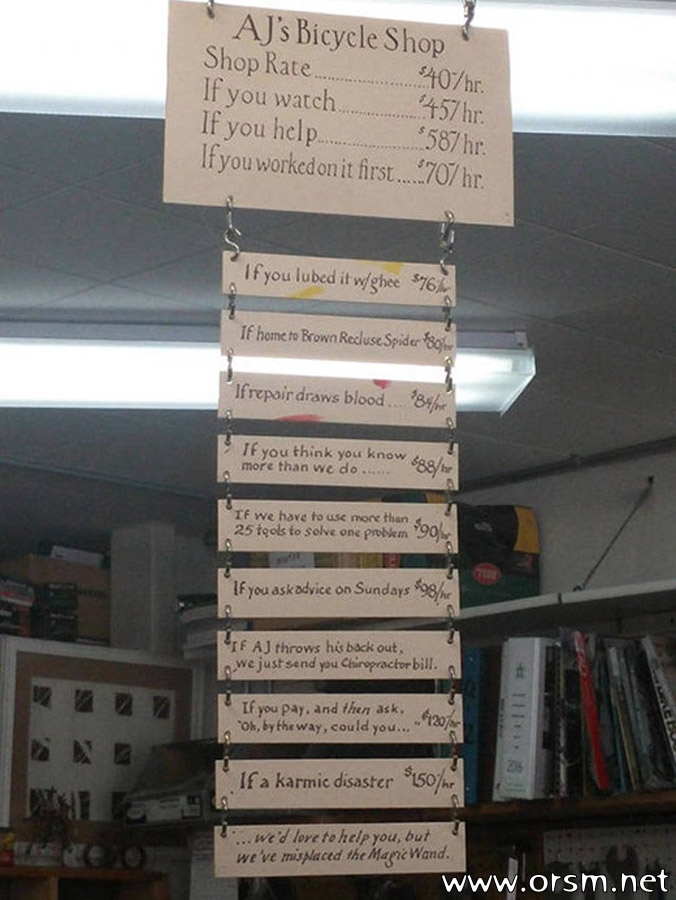 AJ's Bicycle Shop
Shop Rate..................$40/hr.
If you watch..............$45/hr.
If you help..................$58/hr.
If you worked on it first......$70/hr.
If you lubed it w/ghee $76/hr
If home to Brown Recluse Spider $80/hr
If repair draws blood .... $84/hr
If you think you know
more than we do ...... $88/hr
If we have to use more than
25 tools to solve one problem $90/hr
If you ask advice on Sundays $98/hr
If AJ throws his back out,
we just send you Chiropractor bill.
If you pay, and then ask,
"Oh, by the way, could you... .. $120/hr
If a karmic disaster $150/hr
...we'd love to help you, but
we've misplaced the Magic Wand.
2016
www.orsm.net